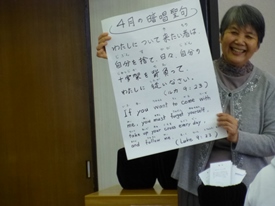 4月の暗唱聖句
わたしについて来たい者は
自分を捨て、日々、自分の
十字架を背負って
わたしに従いなさい。
(ルカ 9:23)
If you want to come with
me, you must forget yourself,
take up your cross every day,
and follow me. (Luke 9:23)